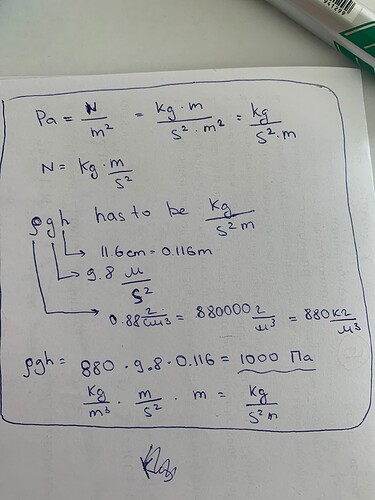 Pa = N/m² = kg · m/s² · m² = kg/s² · m
N = kg · m/s²
ρgh has to be kg/s²m
11.6cm = 0.116m
9.8 м/s²
0.88 г/см³ = 880000 г/м³ = 880 кг/м³
ρgh = 880 · 9.8 · 0.116 = 1000 Па
kg/m³ · m/s² · m = kg/s² m